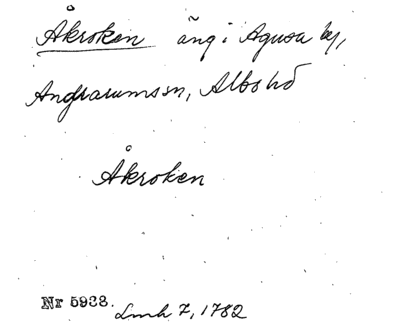 Åkroken äng i Agusa by,
Andrarums sn, Albo hd
Åkroken
Nr 5938.
Lmh 7, 1782